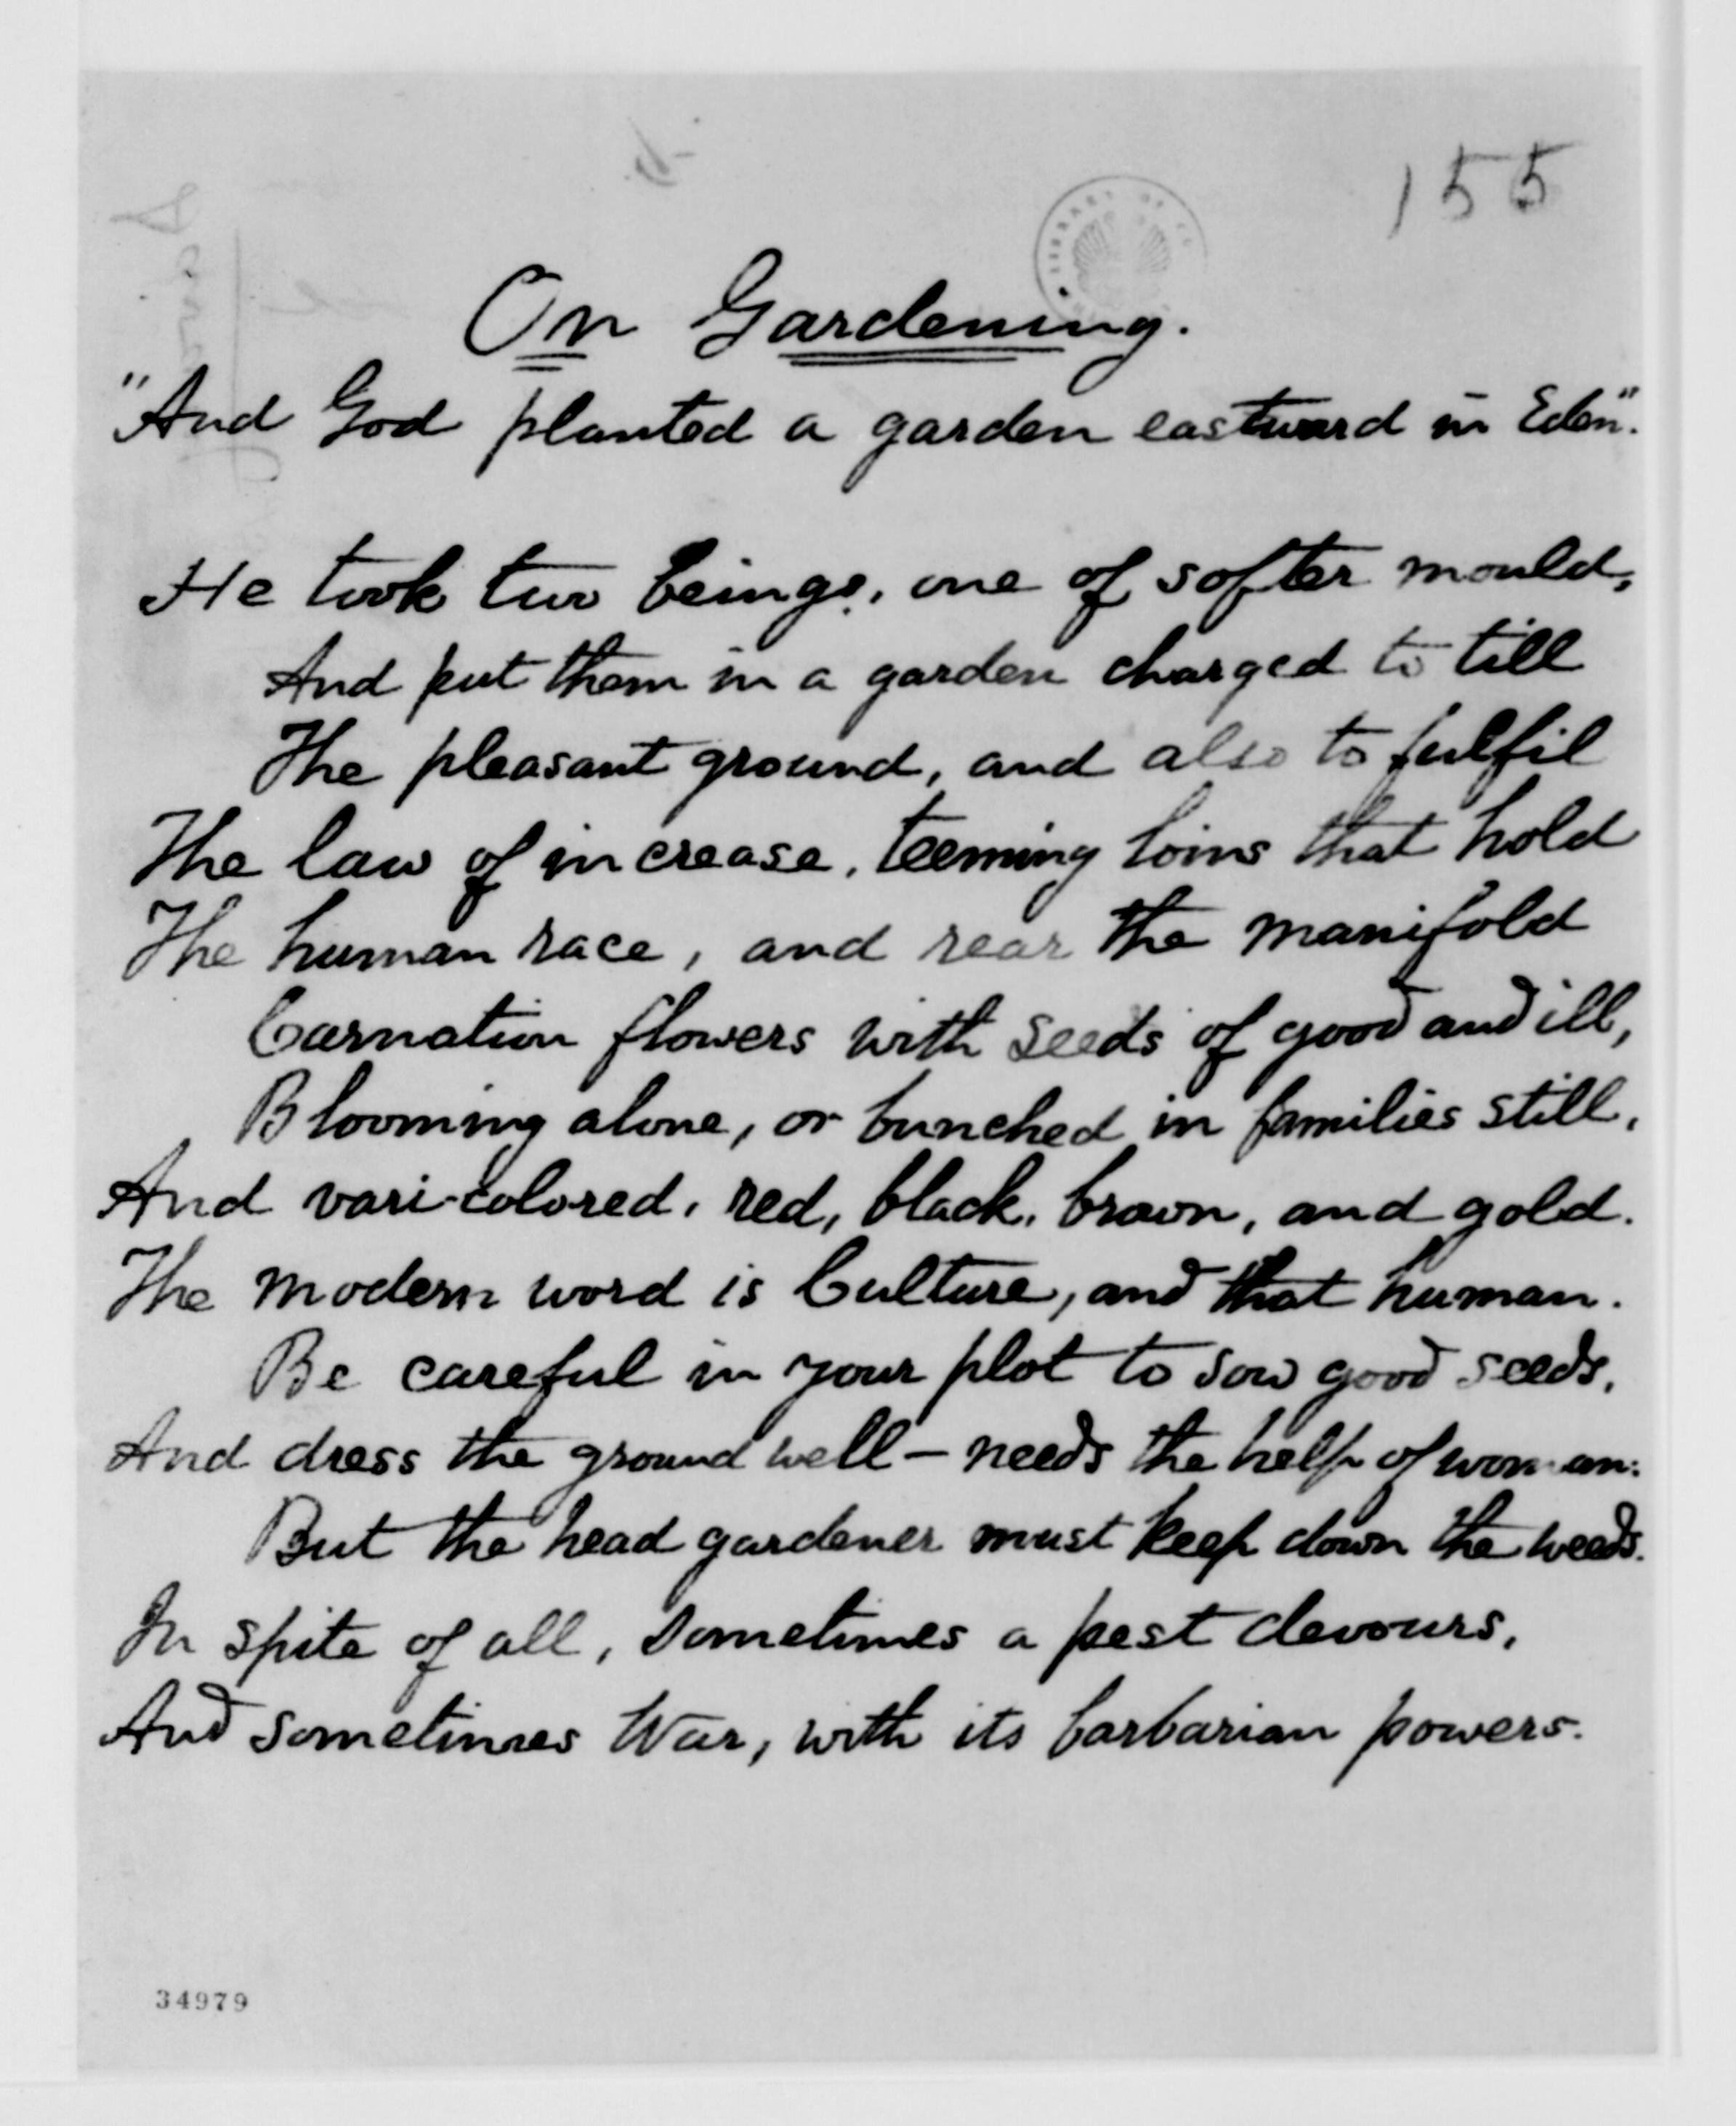 155
On Gardening.
"And God planted a garden eastward in Eden".
He took two beings, one of softer mould,
And put them in a garden charged to till
The pleasant ground, and also to fulfil
The law of increase, teeming loins that hold
The human race, and rear the manifold
Carnation flowers with seeds of good and ill,
Blooming alone, or bunched in families still,
And vari-colored, red, black, brown, and gold.
The modern word is Culture, and that human.
Be careful in your plot to sow good seeds,
And dress the ground well – needs the help of woman:
But the head gardener must keep down the weeds.
In spite of all, sometimes a pest devours,
And sometimes War, with its barbarian powers.
34979